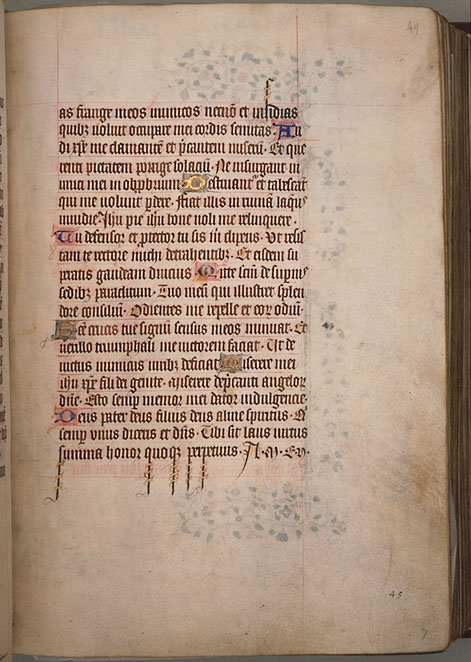 49
as frange meos inimicos necnō et insidias
quibꝫ voluit occupare mei cordis semitas· Au
di xp̄e me clamantē et p̄cantem miserū· Et que
renti pietatem porrige solaciū· Ne insurgant in
imici mei in obprbrium Destruant² et tabescāt
qui me volunt p̄dere· fiat illis in ruinā laque²
inuidie· Ihū pie ihū bone noli me relinquere·
Tu defensor et ptector tu sis m̄ clipeus· Vt resis
tam te rectore michi detrahentibꝫ· Et eisdem su
peratis gaudeam diucius Mitte scm̄ de supnis
sedibꝫ paraclitum· Tuo meū qui illustret splen
dore consiliū· Odientes me repelle et eor odiū·
Sc̄e crucis tue signū sensus meos muniat· Et
vexillo triumphali me victorem faciat· Ut de
uictus inimicus viribꝫ deficiat Miserere mei
ihū xp̄e fili dei genite· Miserere dep̄canti angelor
dn̄e· Esto semp memor mei dator indulgencie·
Deus pater deus filius deus alme spiritus· Q̄
semp vnus diceris et dn̄s· Tibi sit laus virtus
summa honor quoqꝫ perpetuus· A·M·EN·
45